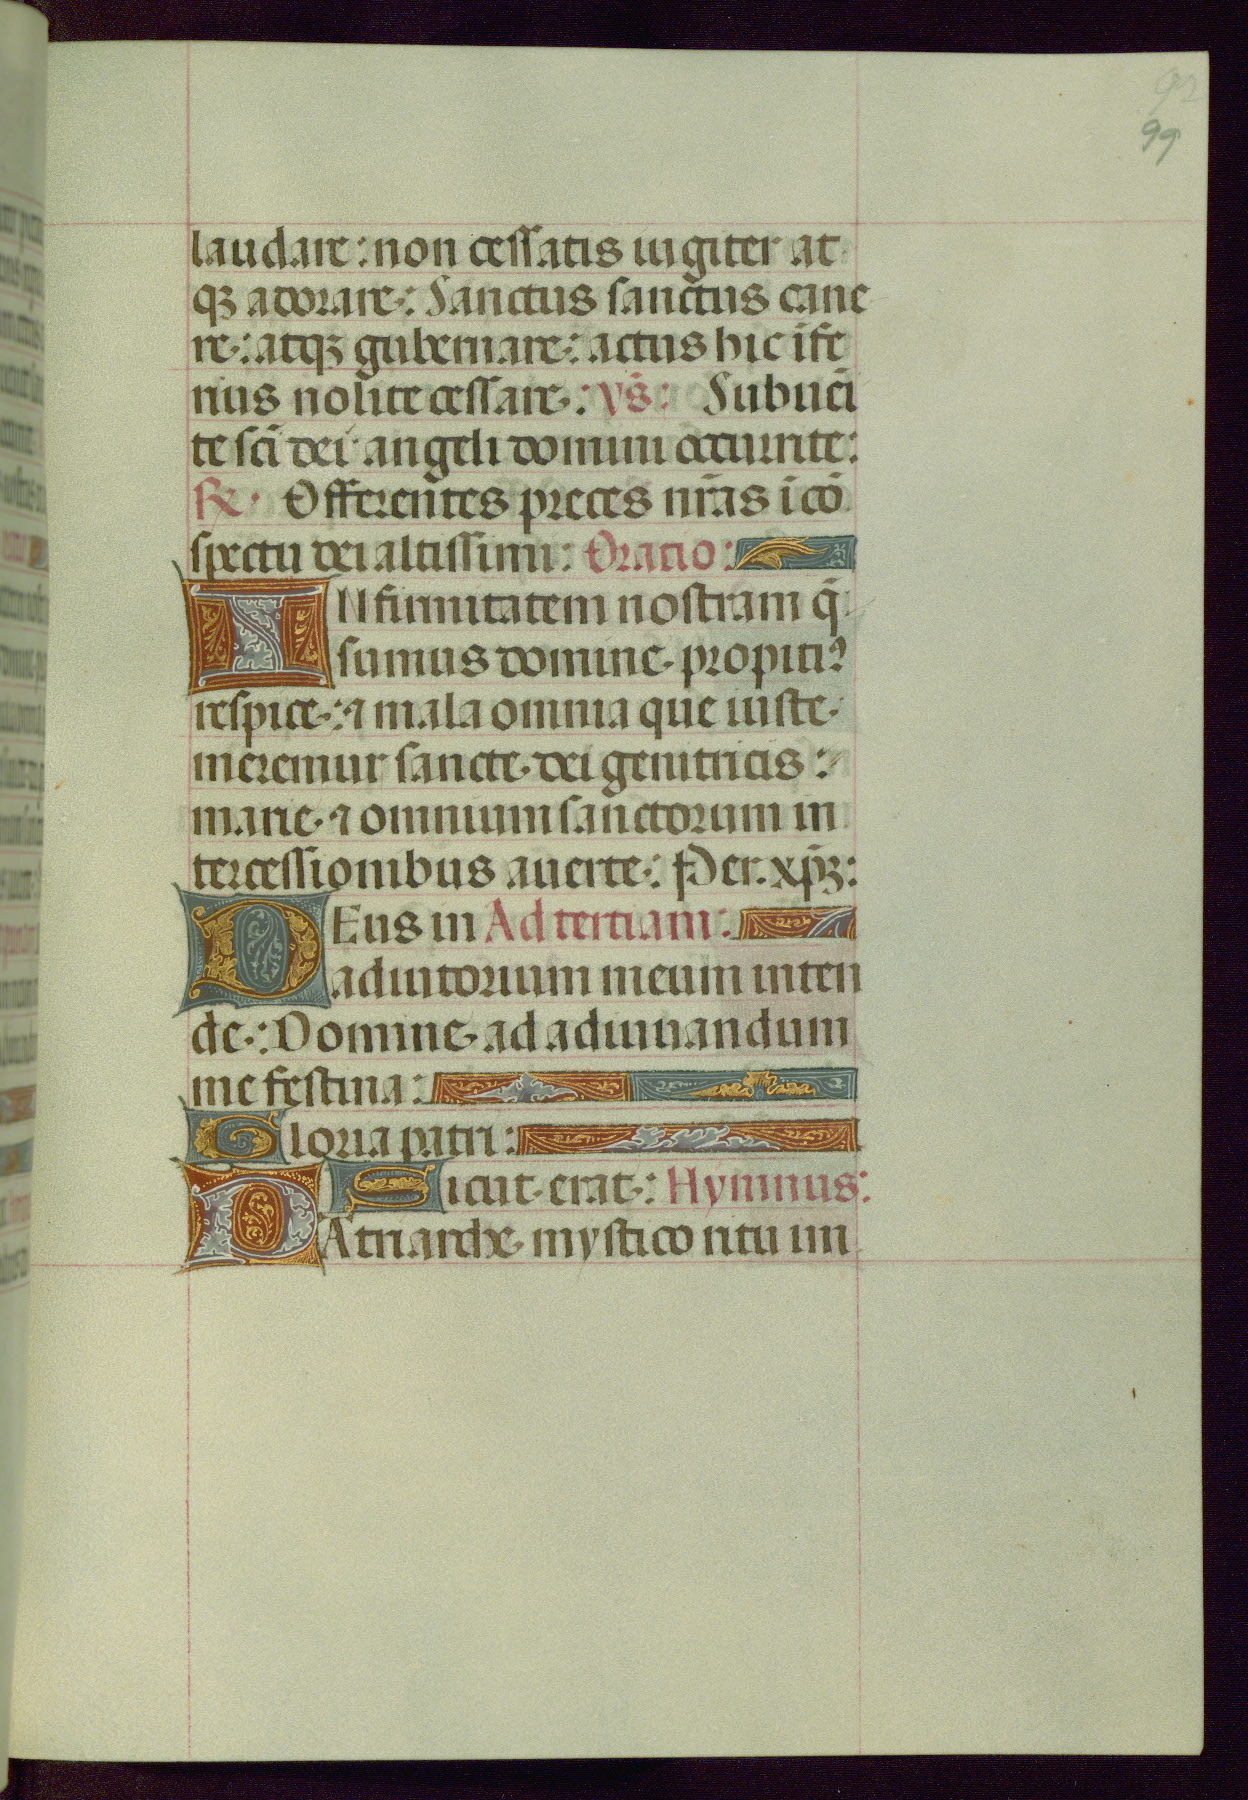 92
99
laudare : non cessatis iugiter at
qꝫ adorare : Sanctus sanctus cane
re : atqꝫ gubernare : actus hic īfe
rius nolite cessare : ỹs : Subueī
te scī dei angeli domini occurrite :
℞ . Offerentes preces nr̄as ī cō
spectu dei altissimi : Oratio :
INfirmitatem nostram q̄
sumus domine . propitiꝰ
respice : ⁊ mala omnia que iuste
meremur sancte dei genitricis :
marie . ⁊ omnium sanctorum in
tercessionibus auerte : Per . xp̄ꝫ :
DEus in Ad tertiam :
adiutorium meum inten
de : Domine ad adiuuandum
me festina :
Gloria patri :
Sicut erat : Hymnus :
PAtriarche mystico ritu im